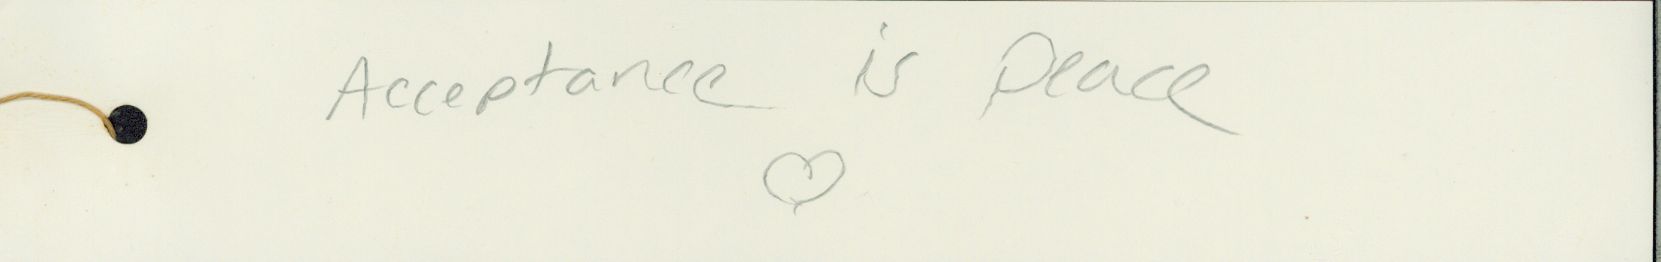 Acceptance is peace